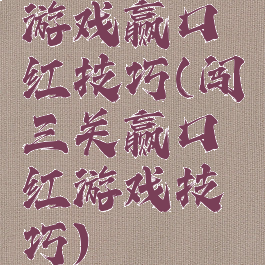 游戏赢口
红技巧(闯
三关赢口
红游戏技
巧)